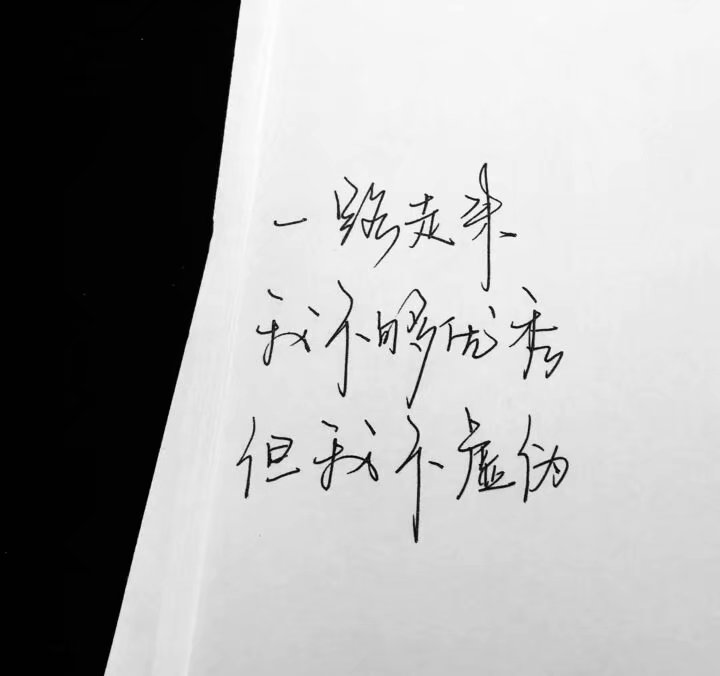 一路走来
我不够优秀
但我不虚伪